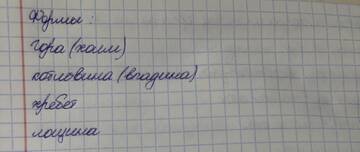 Формы:
Гора (холм)
котловина (впадина)
хребет
лощина